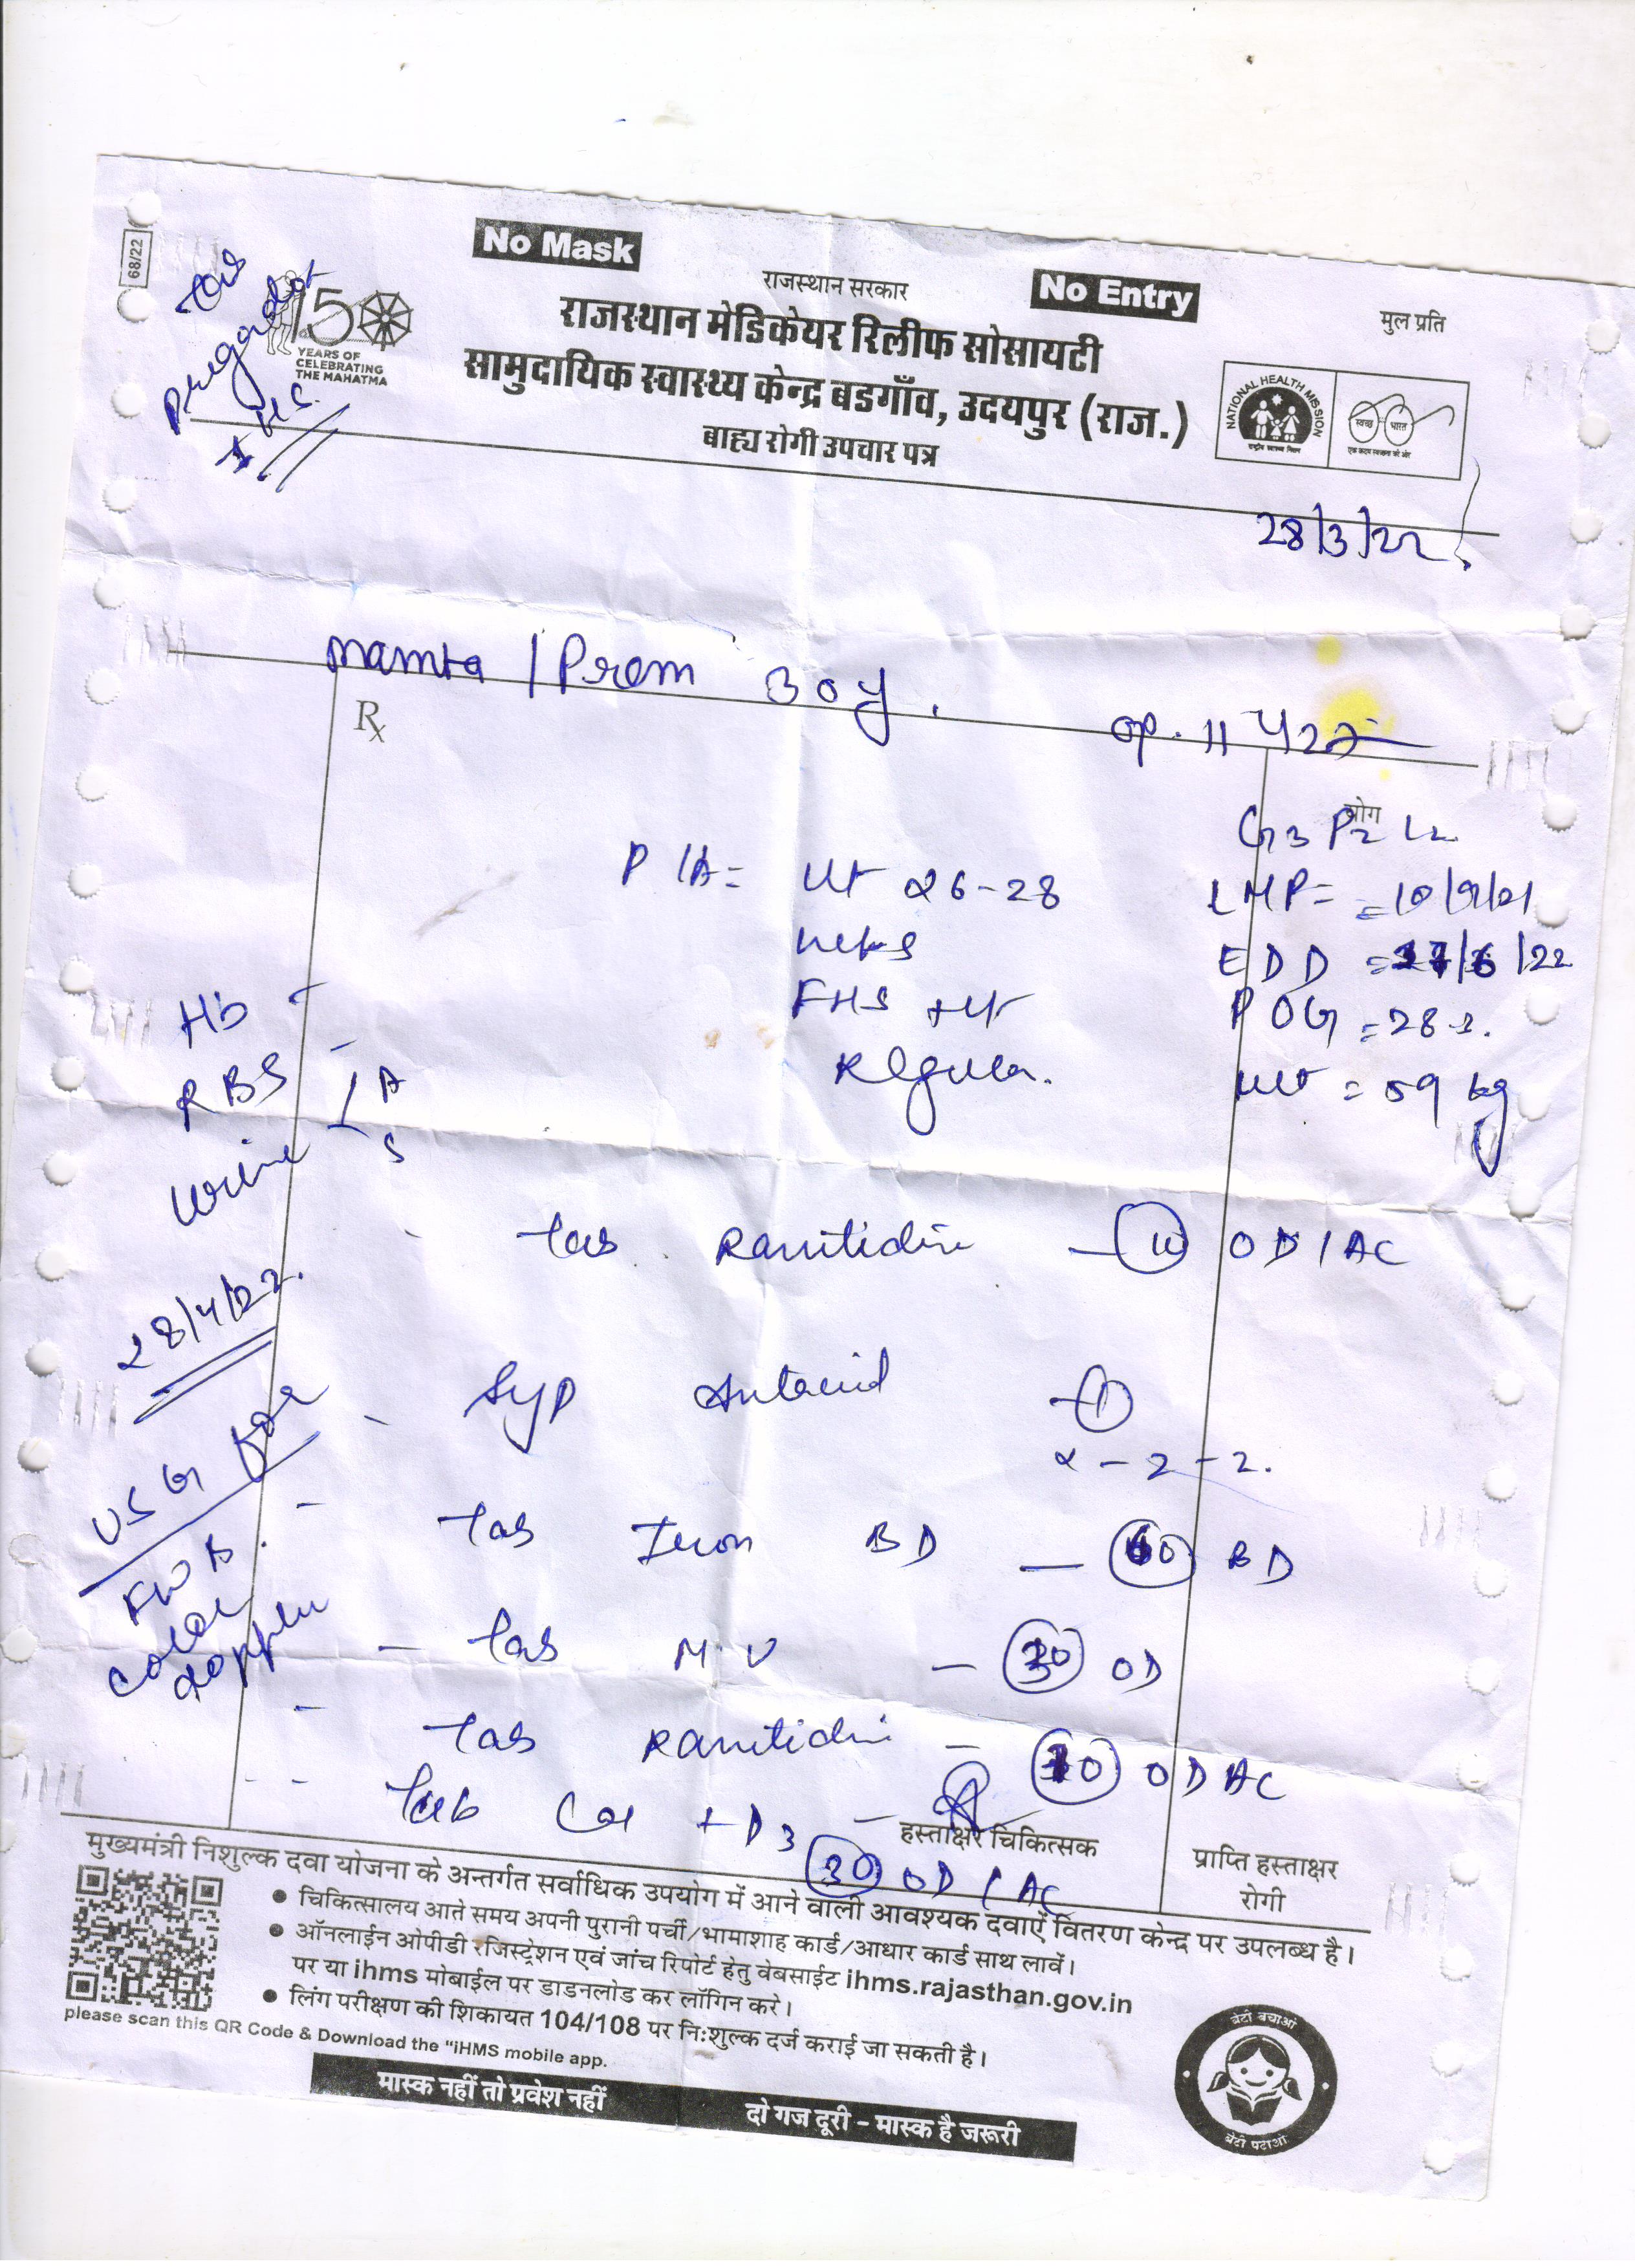 68/22
No Mask
राजस्थान सरकार
No Entry
मुल प्रति
150
YEARS OF
CELEBRATING
THE MAHATMA
राजस्थान मेडिकेयर रिलीफ सोसायटी
सामुदायिक स्वास्थ्य केन्द्र बडगाँव, उदयपुर (राज.)
बाह्य रोगी उपचार पत्र
NATIONAL HEALTH MISSION
राष्ट्रीय स्वास्थ्य मिशन
स्वच्छ भारत
एक कदम स्वच्छता की ओर
28/3/22
Mamta / Prem 30 y.
OP. 11422
Rx
रोग
G3 P2 L2
P/A = Ut 26-28
weeks
FHS +ut
Regular.
LMP = 10/9/21
EDD = 17/6/22
POG = 28
wt = 59 kg
Hb -
RBS -
Urine A
S
Tab Ranitidin - 10 OD/AC
28/4/22.
Syp Antacid - 1
2 - 2 - 2.
USG for
FWB
color
doppler
- Tab Iron BD - 60 BD
- Tab M.V - 30 OD
- Tab Ranitidin - 10 OD AC
- Tab Cal + D3 -
30 OD / AC
हस्ताक्षर चिकित्सक
प्राप्ति हस्ताक्षर
रोगी
मुख्यमंत्री निशुल्क दवा योजना के अन्तर्गत सर्वाधिक उपयोग में आने वाली आवश्यक दवाऐं वितरण केन्द्र पर उपलब्ध है।
• चिकित्सालय आते समय अपनी पुरानी पर्ची/भामाशाह कार्ड/आधार कार्ड साथ लावें।
• ऑनलाईन ओपीडी रजिस्ट्रेशन एवं जांच रिपोर्ट हेतु वेबसाईट ihms.rajasthan.gov.in
पर या ihms मोबाईल पर डाडनलोड कर लॉगिन करे।
• लिंग परीक्षण की शिकायत 104/108 पर नि:शुल्क दर्ज कराई जा सकती है।
please scan this QR Code & Download the "iHMS mobile app.
मास्क नहीं तो प्रवेश नहीं
दो गज दूरी - मास्क है जरूरी
बेटी बचाओ
बेटी पढाओ